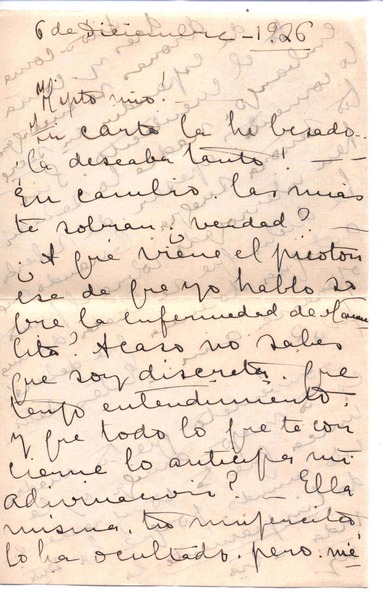 6 de Diciembre - 1926
Hijito mio! -
Tu carta la he besado..
¡la deseaba tanto! -
En cambio. las mias
te sobran. verdad? -
. A qué viene el picoton
ese de que yo hablo so
bre la enfermedad de Manue
lito? Acaso no sabes
que soy discreta. que
tengo entendimiento.
y que todo lo que te con
cierne lo anticipa mi
adivinacion? - Ella
misma. tu mujercita,
lo ha ocultado. pero. me